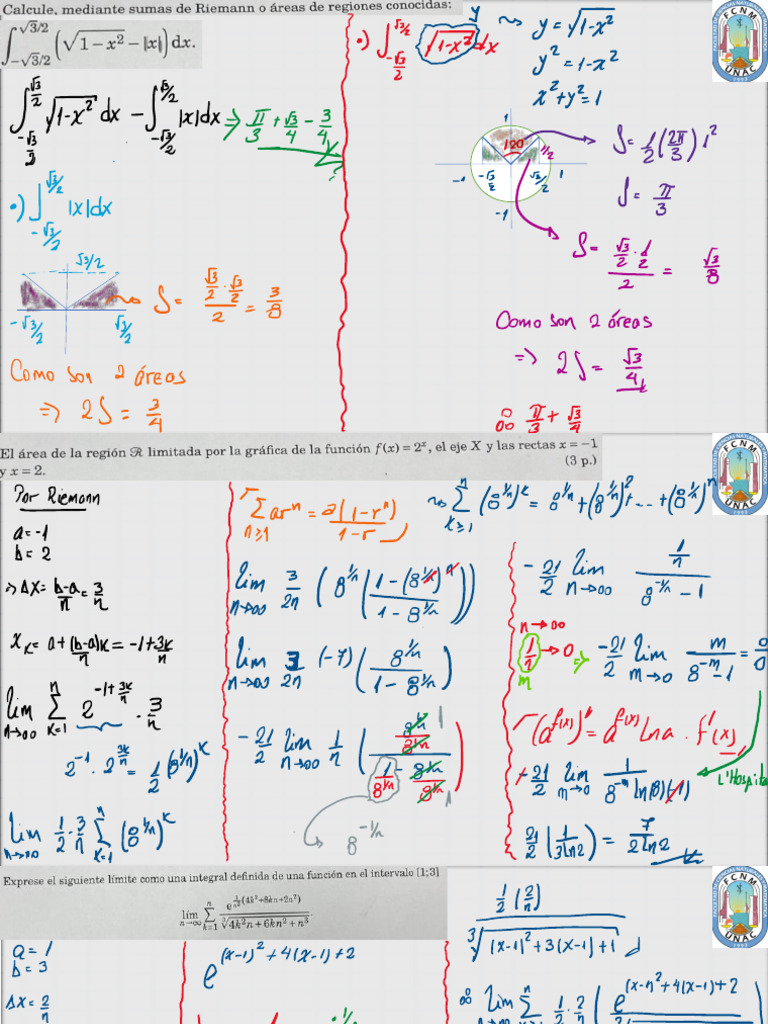 Calcule, mediante sumas de Riemann o áreas de regiones conocidas:
∫_{-√3/2}^{√3/2} (√(1-x²) - |x|) dx.
∫_{-√3/2}^{√3/2} √(1-x²) dx - ∫_{-√3/2}^{√3/2} |x|dx ⇒ π/3 + √3/4 - 3/4
•) ∫_{-√3/2}^{√3/2} |x|dx
√3/2
-√3/2 √3/2
S = (√3/2 · √3/2)/2 = 3/8
Como son 2 áreas
⇒ 2S = 3/4
•) ∫_{-√3/2}^{√3/2} √(1-x²) dx
y
y = √(1-x²)
y² = 1-x²
x²+y² = 1
1
120
1/2
-1 -√3/2 √3/2 1
-1
S = 1/2 (2π/3) 1²
S = π/3
S = (√3/2 · 1/2)/2 = √3/8
Como son 2 áreas
⇒ 2S = √3/4
∴ π/3 + √3/4
FCNM
UNAC
El área de la región ℛ limitada por la gráfica de la función f(x) = 2ˣ, el eje X y las rectas x = −1
y x = 2.
(3 p.)
Por Riemann
a = -1
b = 2
⇒ ΔX = (b-a)/n = 3/n
x_K = a + (b-a)K/n = -1 + 3K/n
lim_{n→∞} Σ_{K=1}^{n} 2^{-1+3K/n} · 3/n
2^{-1} · 2^{3K/n} = 1/2 (8^{1/n})^K
lim_{n→∞} 1/2 · 3/n Σ_{K=1}^{n} (8^{1/n})^K
Σ_{n≥1} arⁿ = a(1-rⁿ)/(1-r)
lim_{n→∞} 3/2n (8^{1/n} (1-(8^{1/n})^n)/(1-8^{1/n}))
lim_{n→∞} 3/2n (-7) (8^{1/n}/(1-8^{1/n}))
-21/2 lim_{n→∞} 1/n ((8^{1/n}/8^{1/n})/(1/8^{1/n} - 8^{1/n}/8^{1/n}))
1
1
8^{-1/n}
Σ_{K≥1}^{n} (8^{1/n})^K = 8^{1/n} + (8^{1/n})² + ... + (8^{1/n})^n
-21/2 lim_{n→∞} (1/n)/(8^{-1/n} - 1)
n→∞
1/n → 0
m
⇒ -21/2 lim_{m→0} m/(8^{-m} - 1) = 0/0
(a^{f(x)})' = a^{f(x)} ln a · f'(x)
L'Hospital
-21/2 lim_{m→0} 1/(8^{-m} ln(8)(-1))
21/2 (1/(3ln2)) = 7/(2ln2)
FCNM
UNAC
Exprese el siguiente límite como una integral definida de una función en el intervalo [1;3]
lím_{n→∞} Σ_{k=1}^{n} e^{1/n²(4k²+8kn+2n²)}/∛(4k²n+6kn²+n³)
a = 1
b = 3
ΔX = 2/n
e^{(x-1)²+4(x-1)+2}
1/2 (2/n)
∛((x-1)²+3(x-1)+1)
FCNM
UNAC